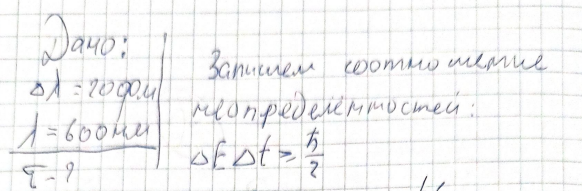 Дано:
Δλ = 20фм
λ = 600нм
τ - ?
Запишем соотношение
неопределённостей:
ΔE Δt ≥ ħ/2